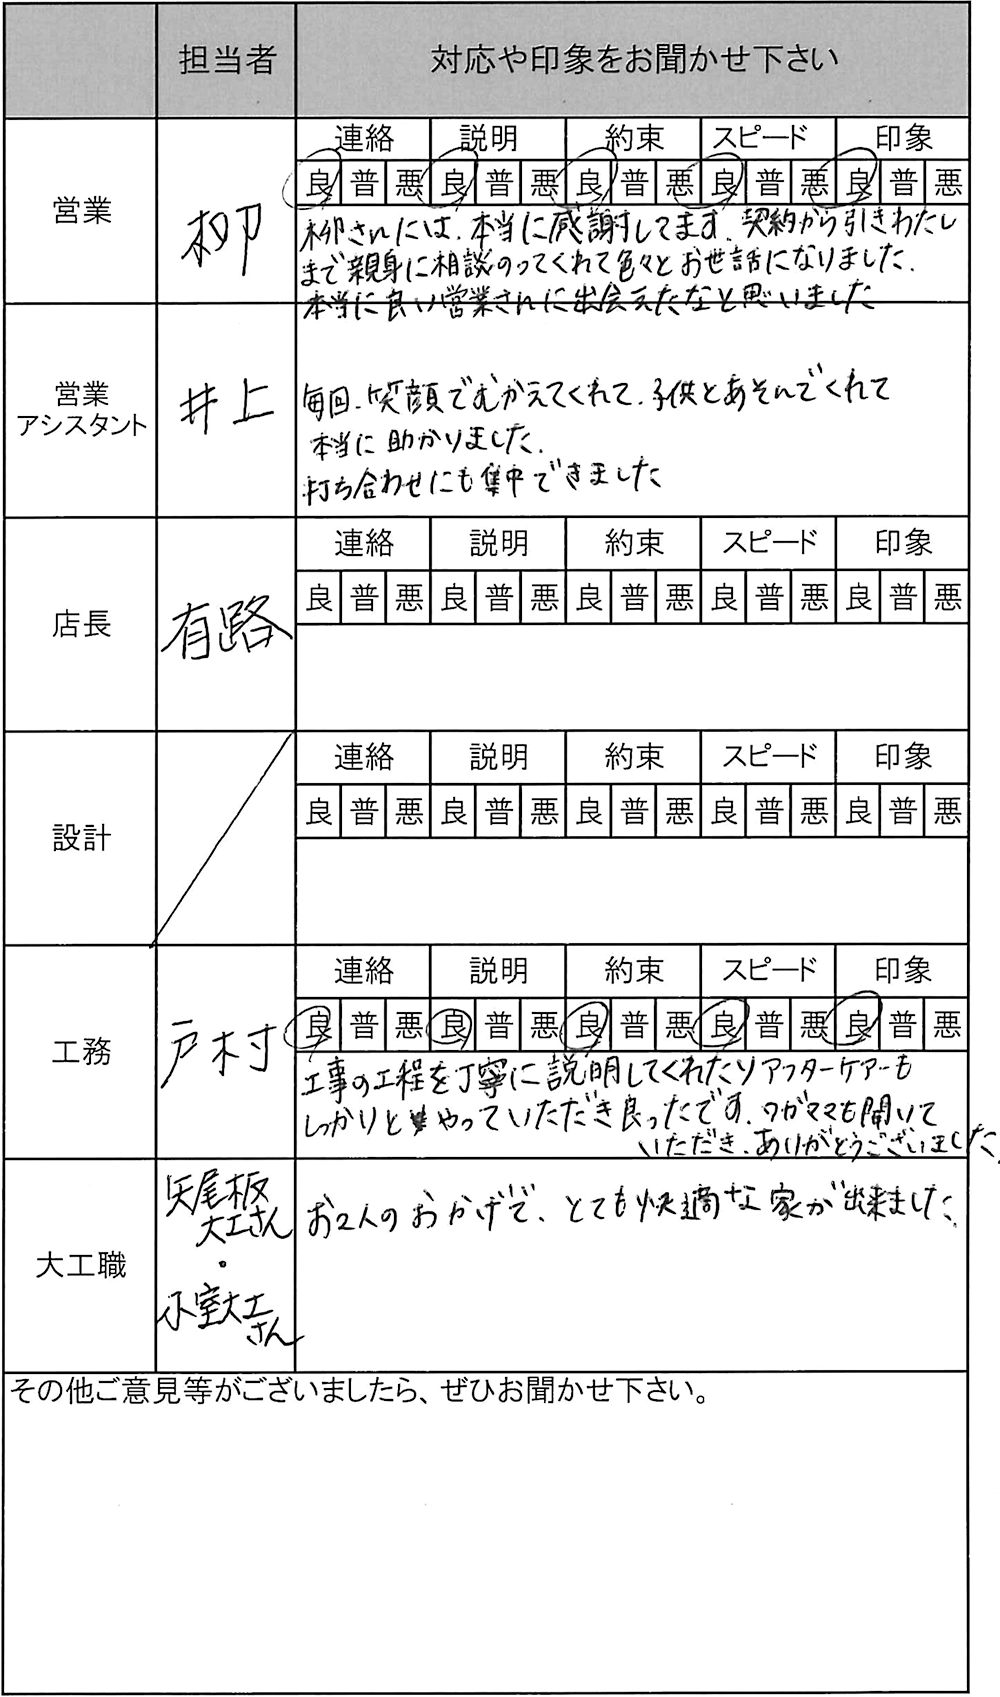 担当者 対応や印象をお聞かせ下さい
営業 柳
連絡 説明 約束 スピード 印象
良 普 悪 良 普 悪 良 普 悪 良 普 悪 良 普 悪
柳さんには、本当に感謝してます。契約から引きわたし
まで親身に相談のってくれて色々とお世話になりました。
本当に良い営業さんに出会えたなと思いました
営業
アシスタント
井上
毎回、笑顔でむかえてくれて、子供とあそんでくれて
本当に助かりました。
打ち合わせにも集中できました
店長 有路
連絡 説明 約束 スピード 印象
良 普 悪 良 普 悪 良 普 悪 良 普 悪 良 普 悪
設計
連絡 説明 約束 スピード 印象
良 普 悪 良 普 悪 良 普 悪 良 普 悪 良 普 悪
工務 戸村
連絡 説明 約束 スピード 印象
良 普 悪 良 普 悪 良 普 悪 良 普 悪 良 普 悪
工事の工程を丁寧に説明してくれたりアフターケアーも
しっかりとやっていただき良ったです。ワガママも聞いて
いただき、ありがとうございました。
大工職
矢尾板
大工さん
・
小室大工
さん
お2人のおかげで、とても快適な家が出来ました。
その他ご意見等がございましたら、ぜひお聞かせ下さい。